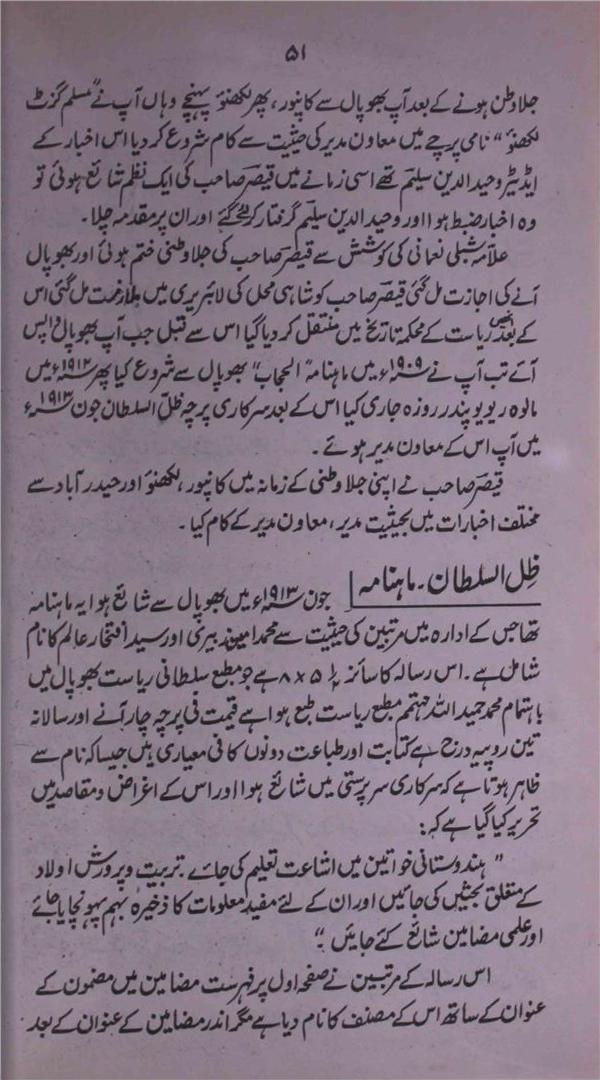 ۵۱
جلاوطن ہونے کے بعد آپ بھوپال سے کانپور، پھر لکھنؤ پہنچے وہاں آپ نے "مسلم گزٹ
لکھنؤ" نامی پرچے میں معاون مدیر کی حیثیت سے کام شروع کر دیا اس اخبار کے
ایڈیٹر وحید الدین سلیم تھے اسی زمانے میں قیصر صاحب کی ایک نظم شائع ہوئی تو
وہ اخبار ضبط ہوا اور وحید الدین سلیم گرفتار کر لئے گئے اور ان پر مقدمہ چلا۔
علامہ شبلی نعمانی کی کوشش سے قیصر صاحب کی جلاوطنی ختم ہوئی اور بھوپال
آنے کی اجازت مل گئی قیصر صاحب کو شاہی محل کی لائبریری میں ملازمت مل گئی اس
کے بعد انہیں ریاست کے محکمہ تاریخ میں منتقل کر دیا گیا اس سے قبل جب آپ بھوپال واپس
آئے تب آپ نے ۱۹۰۹ء میں ماہنامہ "الحجاب" بھوپال سے شروع کیا پھر ۱۹۱۲ء میں
مالوہ ریویو پندرہ روزہ جاری کیا اس کے بعد سرکاری پرچہ ظل السلطان جون ۱۹۱۳ء
میں آپ اس کے معاون مدیر ہوئے۔
قیصر صاحب نے اپنی جلاوطنی کے زمانہ میں کانپور، لکھنؤ اور حیدرآباد سے
مختلف اخبارات میں بحیثیت مدیر، معاون مدیر کے کام کیا۔
ظل السلطان۔ ماہنامہ
جون ۱۹۱۳ء میں بھوپال سے شائع ہوا یہ ماہنامہ
تھا جس کے ادارہ میں مرتبین کی حیثیت سے محمد امین زبیری اور سید افتخار عالم کا نام
شامل ہے۔ اس رسالہ کا سائز ۸x۵ ہے جو مطبع سلطانی ریاست بھوپال میں
باہتمام محمد حمید اللہ مہتمم مطبع ریاست طبع ہوا ہے قیمت فی پرچہ چار آنے اور سالانہ
تین روپیہ درج ہے کتابت اور طباعت دونوں کافی معیاری ہیں جیسا کہ نام سے
ظاہر ہوتا ہے کہ سرکاری سرپرستی میں شائع ہوا اور اس کے اغراض و مقاصد میں
تحریر کیا گیا ہے کہ:
"ہندوستانی خواتین میں اشاعت تعلیم کی جائے۔ تربیت و پرورش اولاد
کے متعلق بحثیں کی جائیں اور ان کے لئے مفید معلومات کا ذخیرہ بہم پہونچایا جائے
اور علمی مضامین شائع کئے جائیں۔"
اس رسالہ کے مرتبین نے صفحہ اول پر فہرست مضامین میں مضمون کے
عنوان کے ساتھ اس کے مصنف کا نام دیا ہے مگر اندر مضامین کے عنوان کے بعد